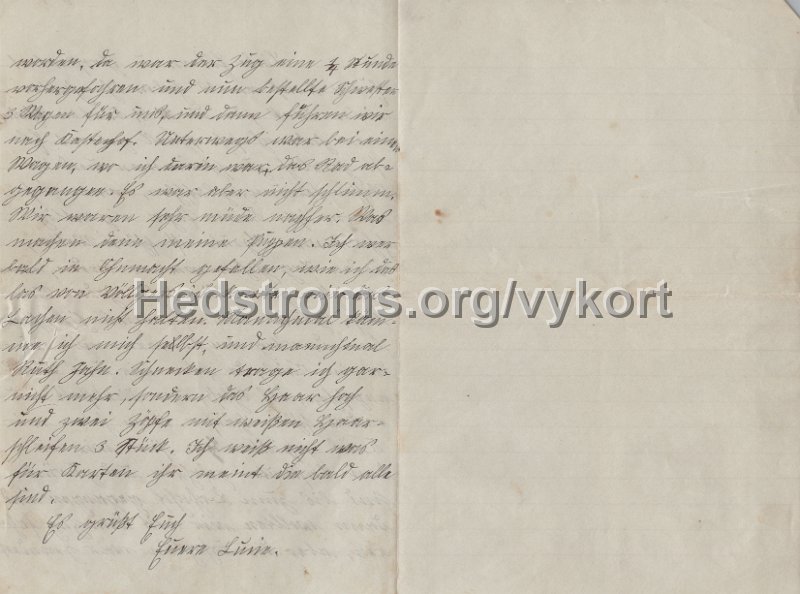 worden, da war der Zug eine ¼ Stunde
vorhergefahren und nun bestellte Schwester
3 Wagen für uns, und dann fuhren wir
nach Unterwegs war bei einem
Wagen, wo ich darin war, das Rad ab-
gegangen. Es war aber nicht schlimm.
Wir waren sehr müde nachher. Was
machen denn meine Puppen. Ich wer
bald in Ohnmacht gefallen, wie ich das
las von
Hedstroms.org/vykort
Lachen nicht halten. Manchmal käm-
me ich mich selbst, und manchmal
Ruth Jahn. Schnecken trage ich gar-
nicht mehr, sondern das Haar hoch
und zwei Zöpfe mit weißen Haar-
schleifen 3 Stück. Ich weiß nicht was
für Karten ihr meint die bald alle
sind.
Es grüßt Euch
Euere